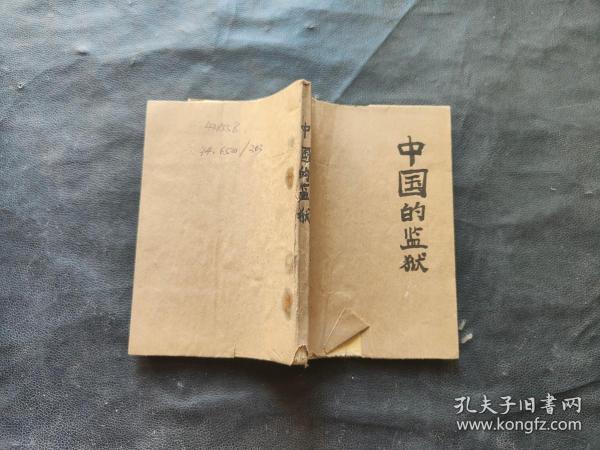 中国的监狱
中国的监狱
孔夫子旧书网
www.kongfz.com